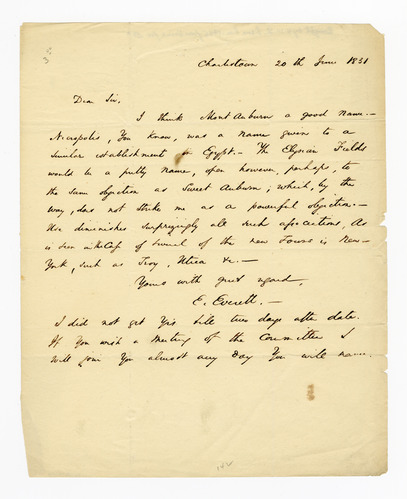 Charlestown 20th June 1831
Dear Sir,
I think Mont Auburn a good name.—
Necropolis, You know, was a name given to a
similar establishment in Egypt.— The Elysian Fields
would be a pretty name, open however, perhaps, to
the same objection as Sweet Auburn; which, by the
way, does not strike me as a powerful objection.—
Use diminishes surprizingly all such associations, As
is seen in the case of several of the new Towns in New-
York, such as Troy, Utica &c.—
Yours with great regard,
E. Everett.—
I did not get Yrs till two days after date.
If You wish a meeting of the Committee I
will join You almost any day You will name.